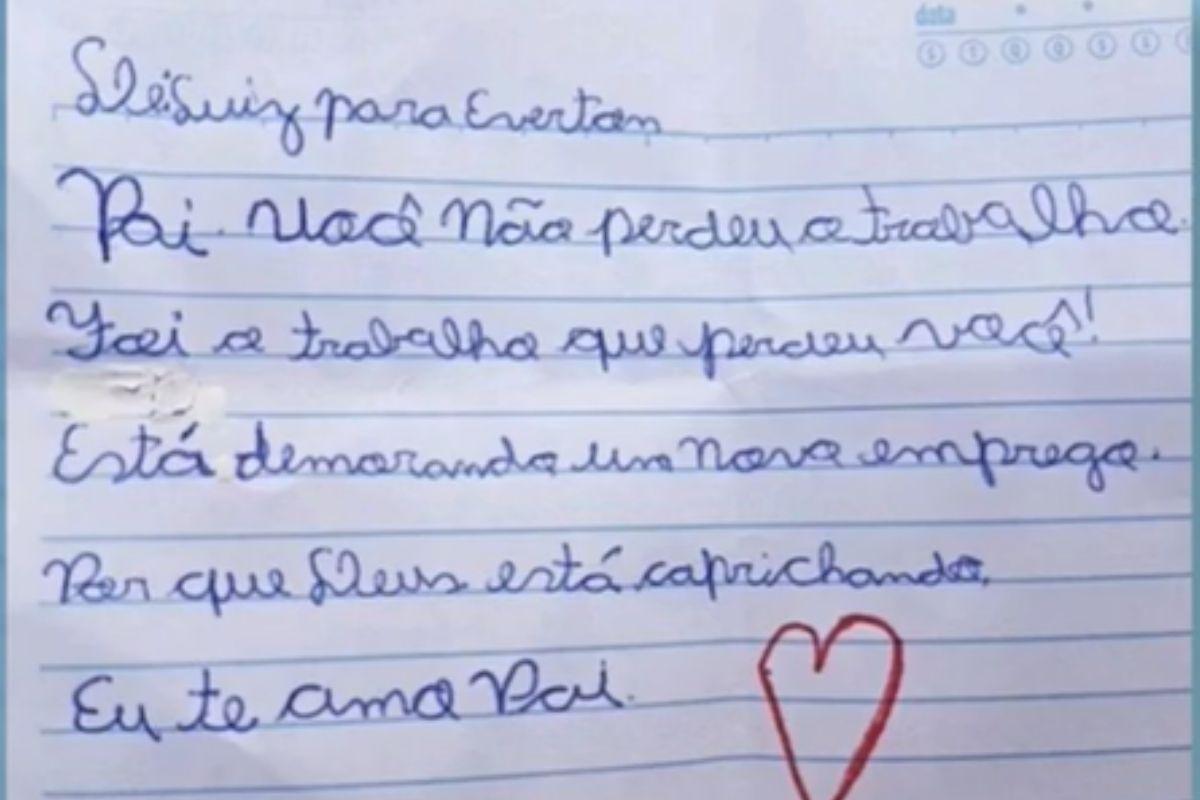 data
S T Q Q S S
De: Luiz para Evertom
Pai. Você Não perdeu o trabalho.
Foi o trabalho que perdeu você!
Está demorando um novo emprego.
Por que Deus está caprichando.
Eu te amo Pai.